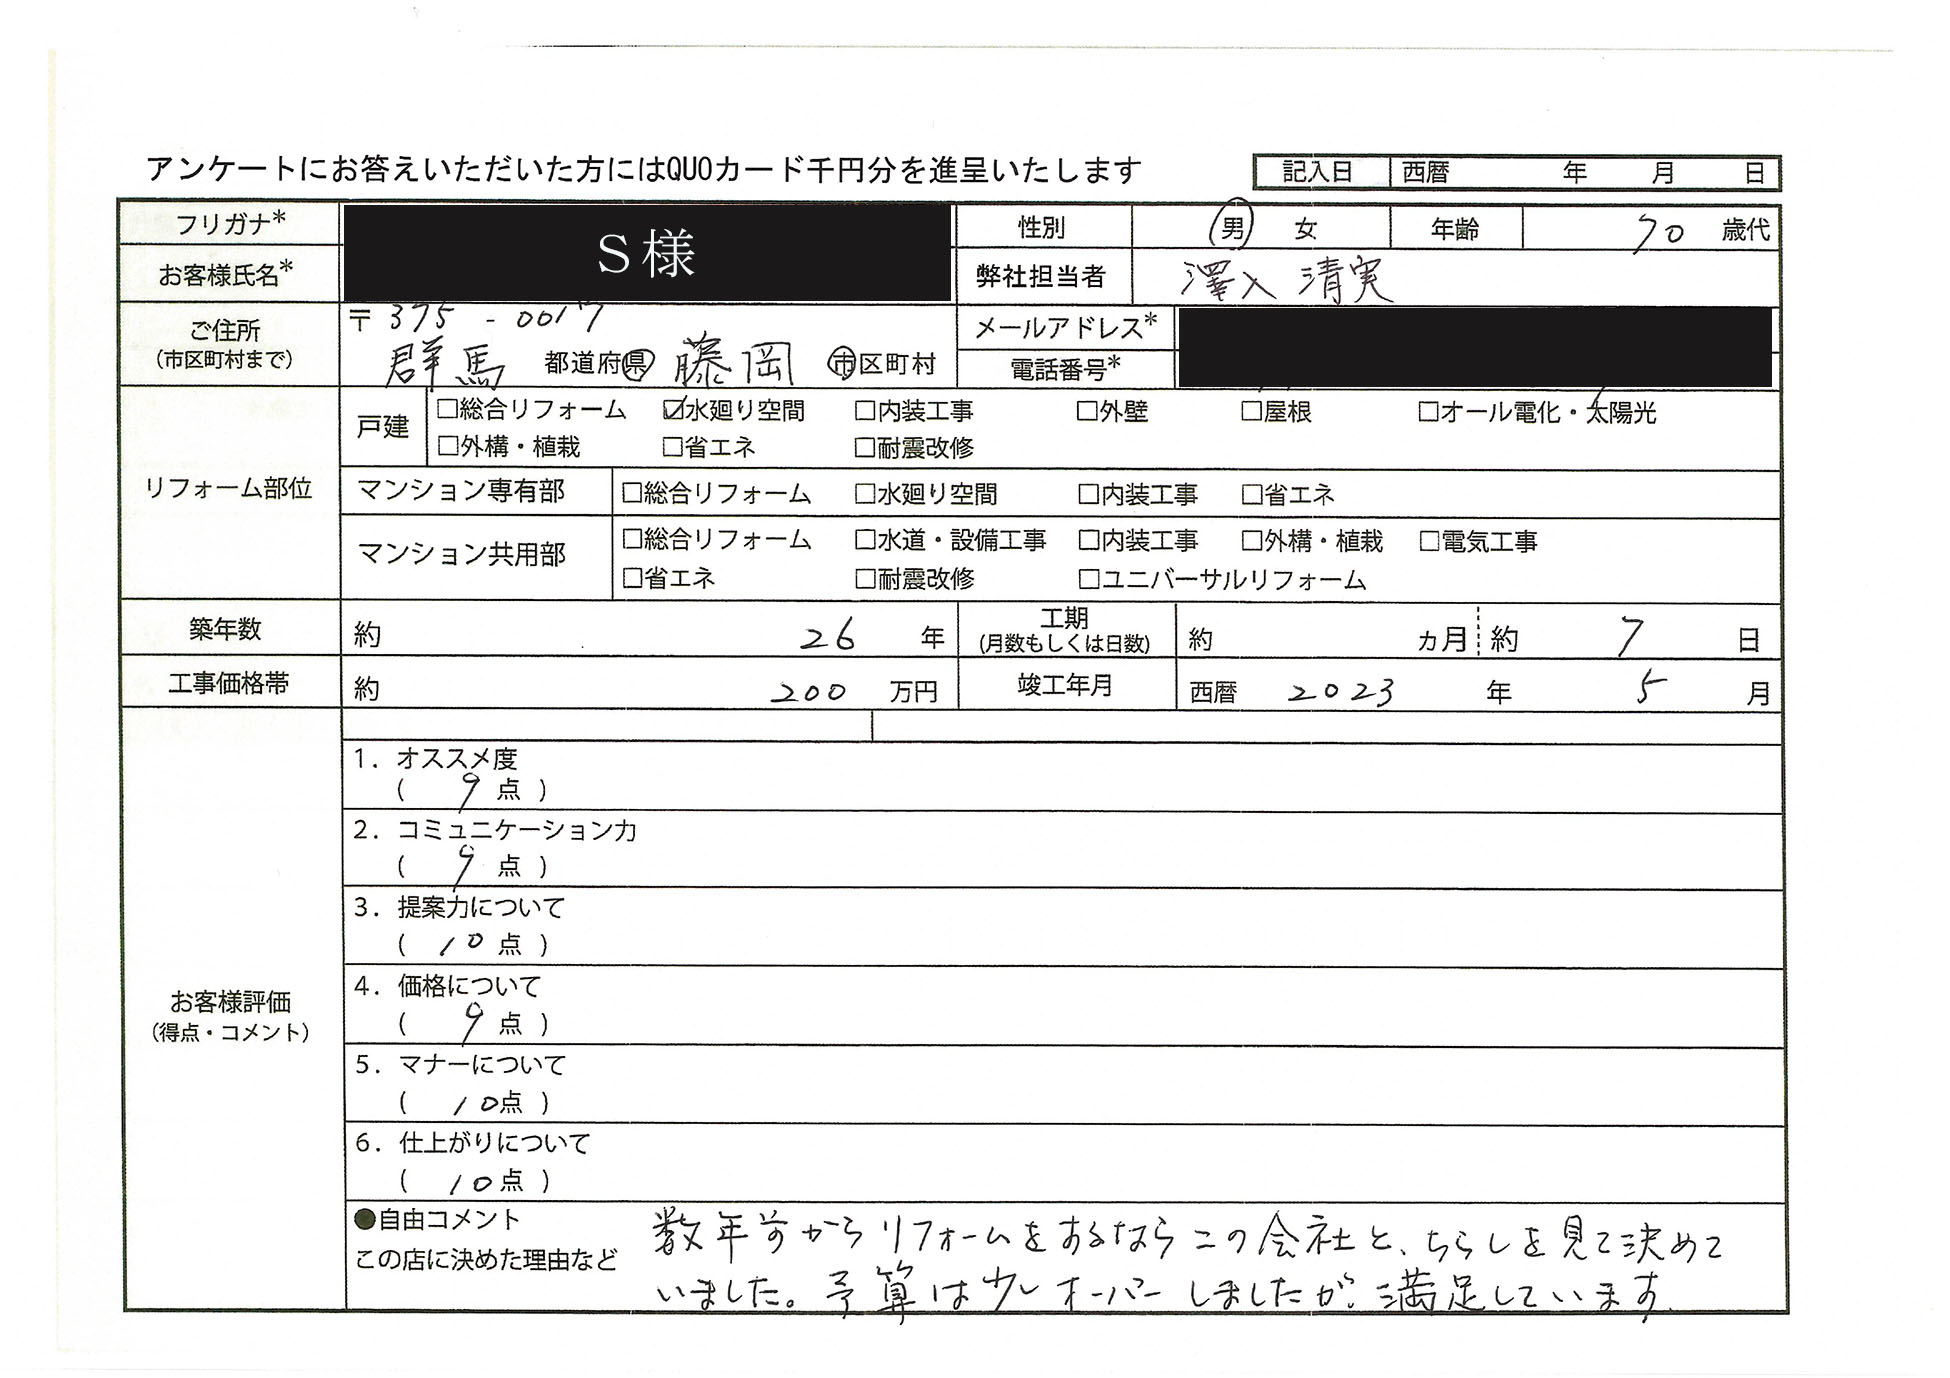 アンケートにお答えいただいた方にはQUOカード千円分を進呈いたします
記入日 西暦 年 月 日
フリガナ* S様 性別 男 女 年齢 70 歳代
お客様氏名* 弊社担当者 澤入 清実
ご住所 (市区町村まで) 〒375-0017 メールアドレス*
群馬 都道府県 藤岡 市区町村 電話番号*
リフォーム部位
戸建 □総合リフォーム ☑水廻り空間 □内装工事 □外壁 □屋根 □オール電化・太陽光
□外構・植栽 □省エネ □耐震改修
マンション専有部 □総合リフォーム □水廻り空間 □内装工事 □省エネ
マンション共用部 □総合リフォーム □水道・設備工事 □内装工事 □外構・植栽 □電気工事
□省エネ □耐震改修 □ユニバーサルリフォーム
築年数 約 26 年 工期 (月数もしくは日数) 約 ヵ月 約 7 日
工事価格帯 約 200 万円 竣工年月 西暦 2023 年 5 月
お客様評価
(得点・コメント)
1. オススメ度
( 9 点 )
2. コミュニケーション力
( 9 点 )
3. 提案力について
( 10 点 )
4. 価格について
( 9 点 )
5. マナーについて
( 10点 )
6. 仕上がりについて
( 10点 )
●自由コメント
この店に決めた理由など
数年前からリフォームをするならこの会社と、ちらしを見て決めて
いました。予算は少しオーバーしましたが、満足しています。